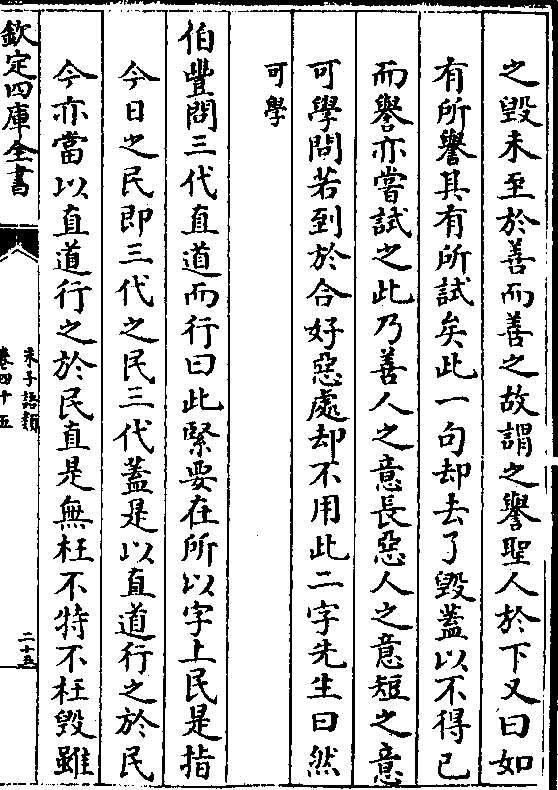 之毀未至於善而善之故謂之譽聖人於下又曰如
有所譽其有所試矣此一句却去了毀蓋以不得已
而譽亦嘗試之此乃善人之意長惡人之意短之意
可學問若到於合好惡處却不用此二字先生曰然
可學
伯豐問三代直道而行曰此緊要在所以字上民是指
今日之民即三代之民三代蓋是以直道行之於民
今亦當以直道行之於民直是無枉不特不枉毀雖
欽定四庫全書
朱子語類
卷四十五
二十五